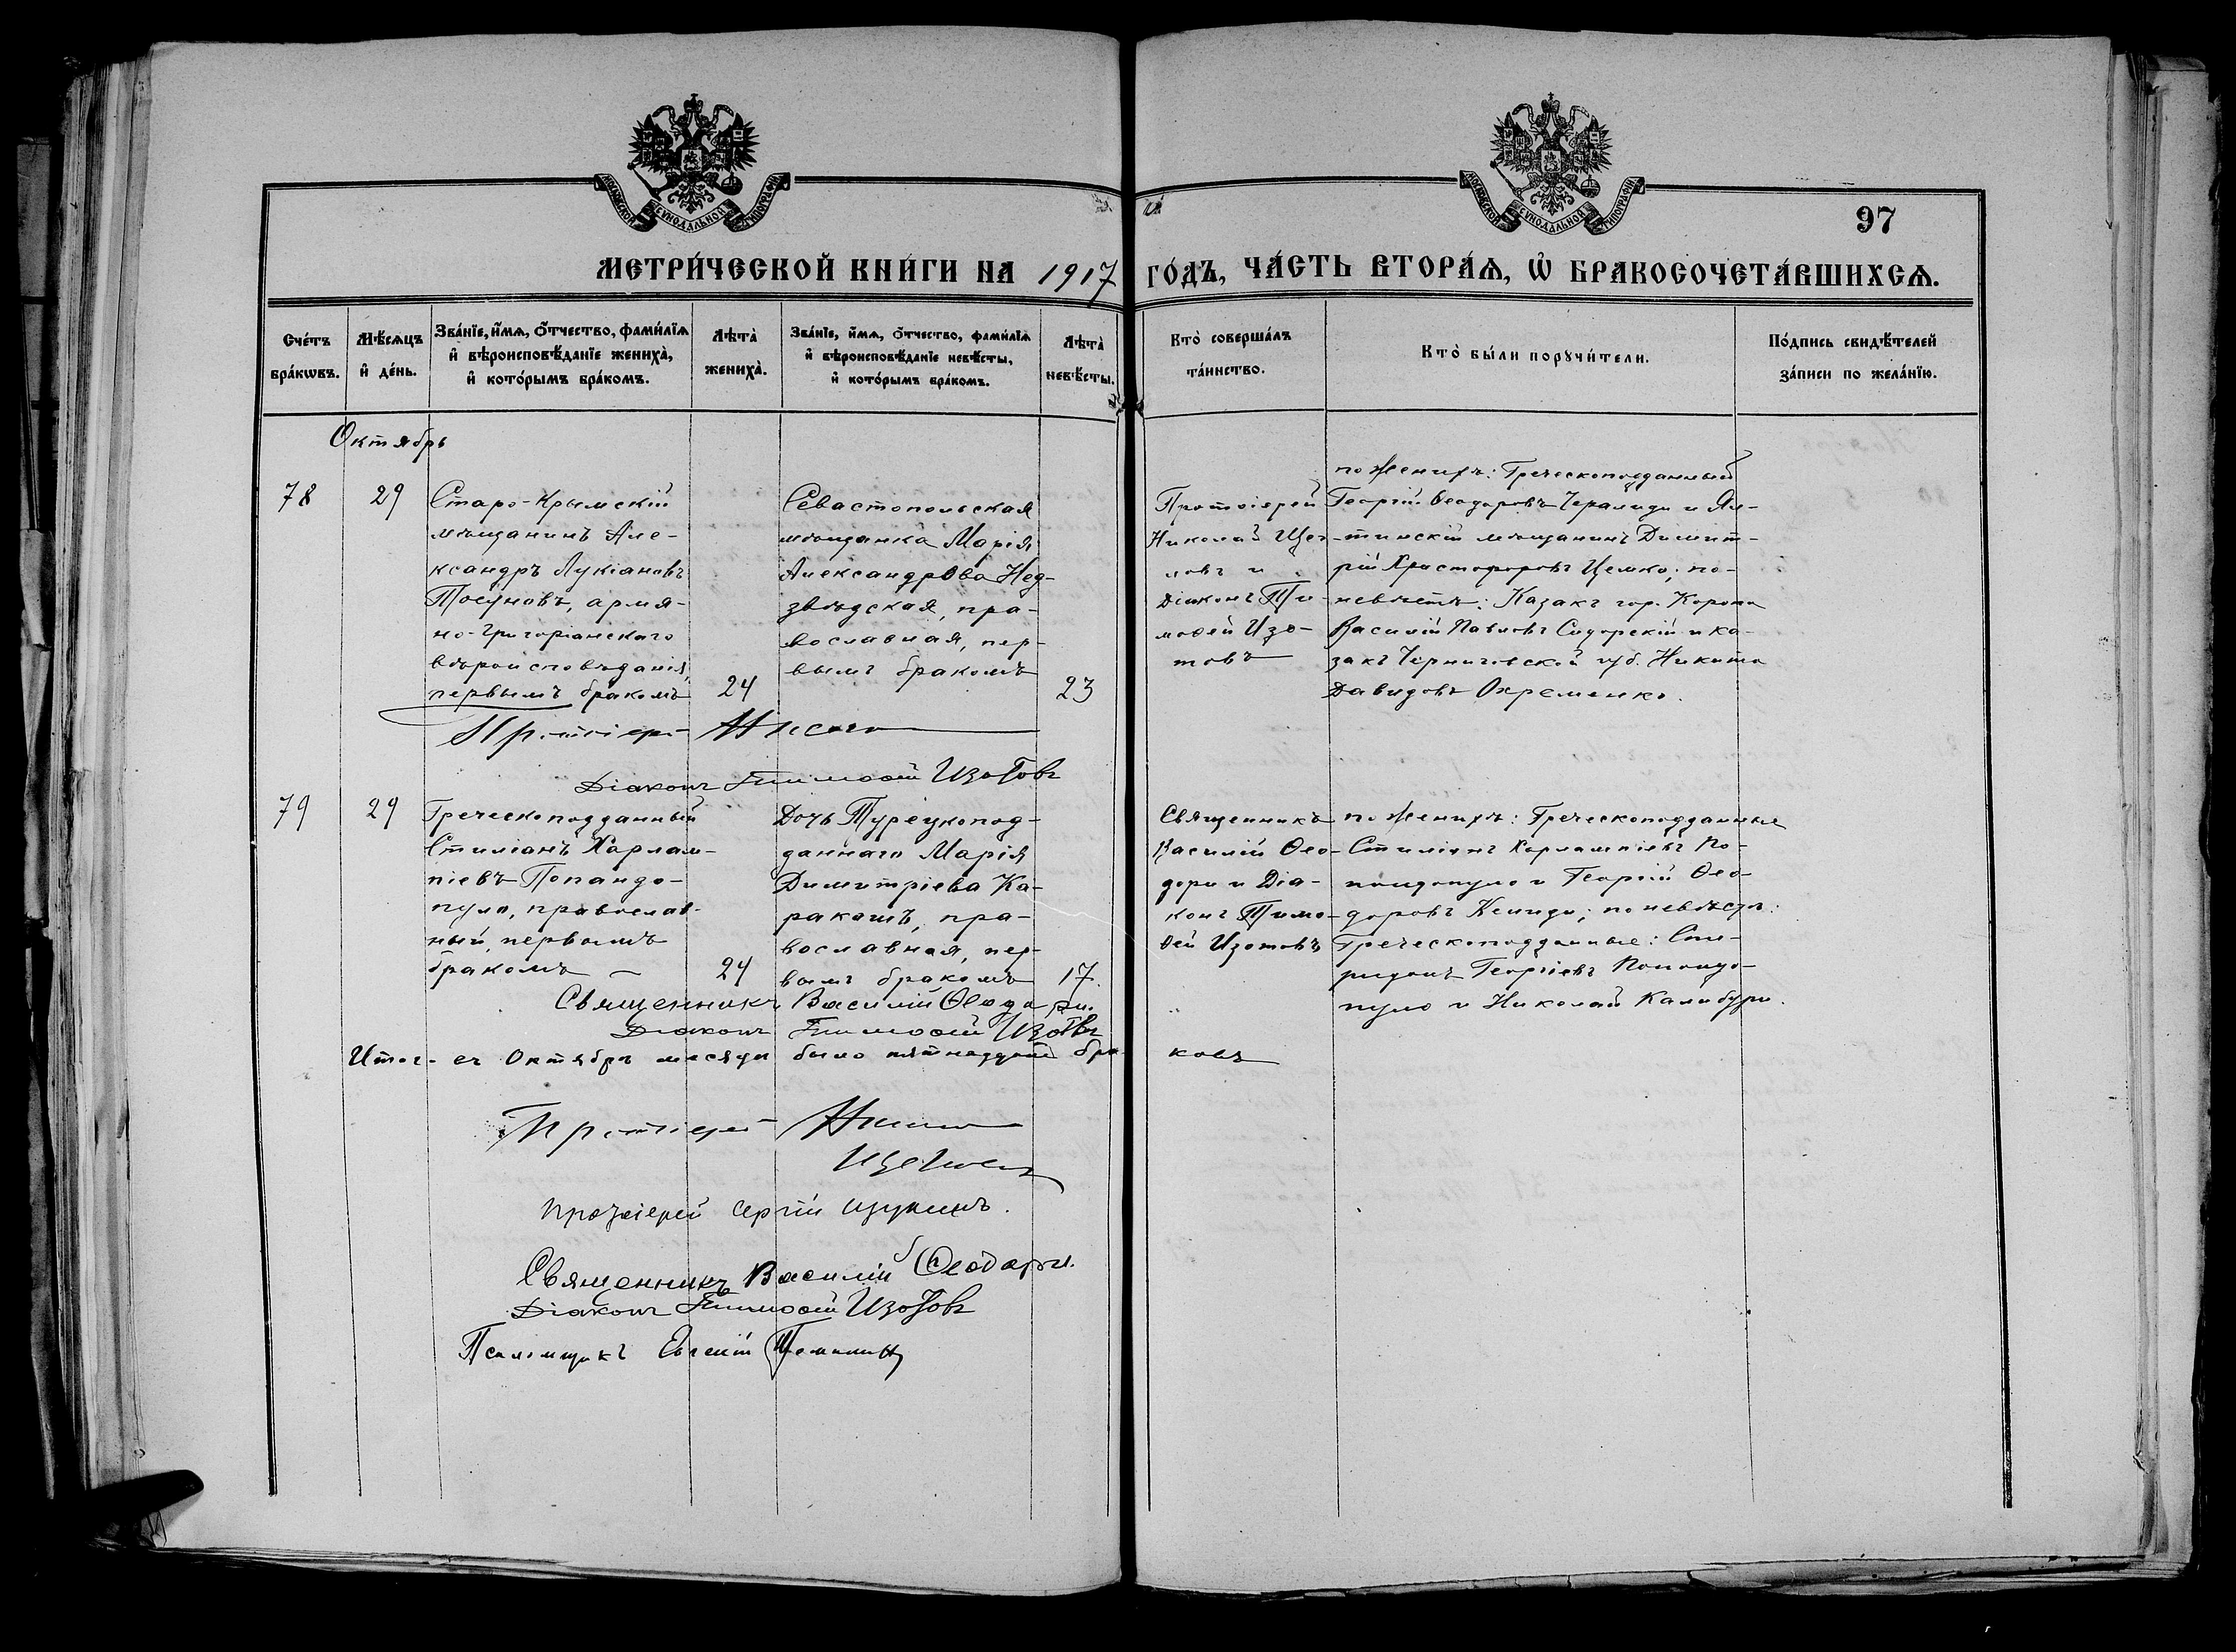 МОСКОВСКОЙ СѴНОДАЛЬНОЙ ТИПОГРАФІИ
МОСКОВСКОЙ СѴНОДАЛЬНОЙ ТИПОГРАФІИ
97
МЕТРИ́ЧЕСКОЙ КНИ́ГИ НА 1917 ГО́ДЪ, ЧА́СТЬ ВТОРА́Ѧ, Ѡ҆ БРАКОСОЧЕТА́ВШИХСѦ.
Сче́тъ бра́кѡвъ.
Мѣ́сѧцъ и҆ де́нь.
Зва́нїе, и҆́мѧ, ѻ҆́тчество, фами́лїѧ
и҆ вѣроисповѣ́данїе жениха̀,
и҆ кото́рымъ бра́комъ.
Лѣта̀ жениха̀.
Зва́нїе, и҆́мѧ, ѻ҆́тчество, фами́лїѧ
и҆ вѣроисповѣ́данїе невѣ́сты,
и҆ кото́рымъ бра́комъ.
Лѣта̀ невѣ́сты.
Кто̀ соверша́лъ
та́инство.
Кто̀ бы́ли порꙋчи́тели.
По́дпись свидѣ́телей
за́писи по жела́нїю.
Октябрь
78
29
Старо-Крымскій
мѣщанинъ Але-
ксандръ Лукіановъ
армя-
но-Григоріанскаго
вѣроисповѣданія,
первымъ бракомъ
24
Севастопольская
мѣщанка Марія
Александрова Нед-
звѣдская, пра-
вославная, пер-
вымъ бракомъ
23
Протоіерей
Николай Щег-
ловъ и
Діаконъ Ти-
моѳей Изо-
товъ
по Женихѣ: Греческоподданный
Георгій Ѳеодоровъ и Ял-
тинскій мѣщанинъ Димит-
рій Христофоровъ по-
невѣстѣ: Казакъ гор.
Василій Павловъ Сидорскій и ка-
закъ Черниговской губ. Никита
Давидовъ Охременко.
Протоіерей
Діаконъ Тимоѳей Изотовъ
79
29
Греческоподданный
Стиліанъ Харлам-
піевъ Попандо-
пуло, православ-
ный, первымъ
бракомъ
24
Дочь Турецкопод-
даннаго Марія
Димитріева Ка-
ракашъ, пра-
вославная, пер-
вымъ бракомъ
17.
Священникъ
Василій Ѳео-
дори и Діа-
конъ Тимо-
ѳей Изотовъ
по Женихѣ: Греческоподданные
Стиліанъ Харлампіевъ По-
пандопуло и Георгій Ѳео-
доровъ по невѣстѣ:
Греческоподданные: Спи-
ридонъ Георгіевъ Попандо-
пуло и Николай
Священникъ Василій Ѳеодори.
Діаконъ Тимоѳей Изотовъ
Итог- въ Октябрѣ месяцѣ было пятнадцать бра-
ковъ
Протоіерей
Щегловъ
Протоіерей Сергій Щукинъ.
Священникъ Василій Ѳеодори.
Діаконъ Тимоѳей Изотовъ
Псаломщикъ Евгеній